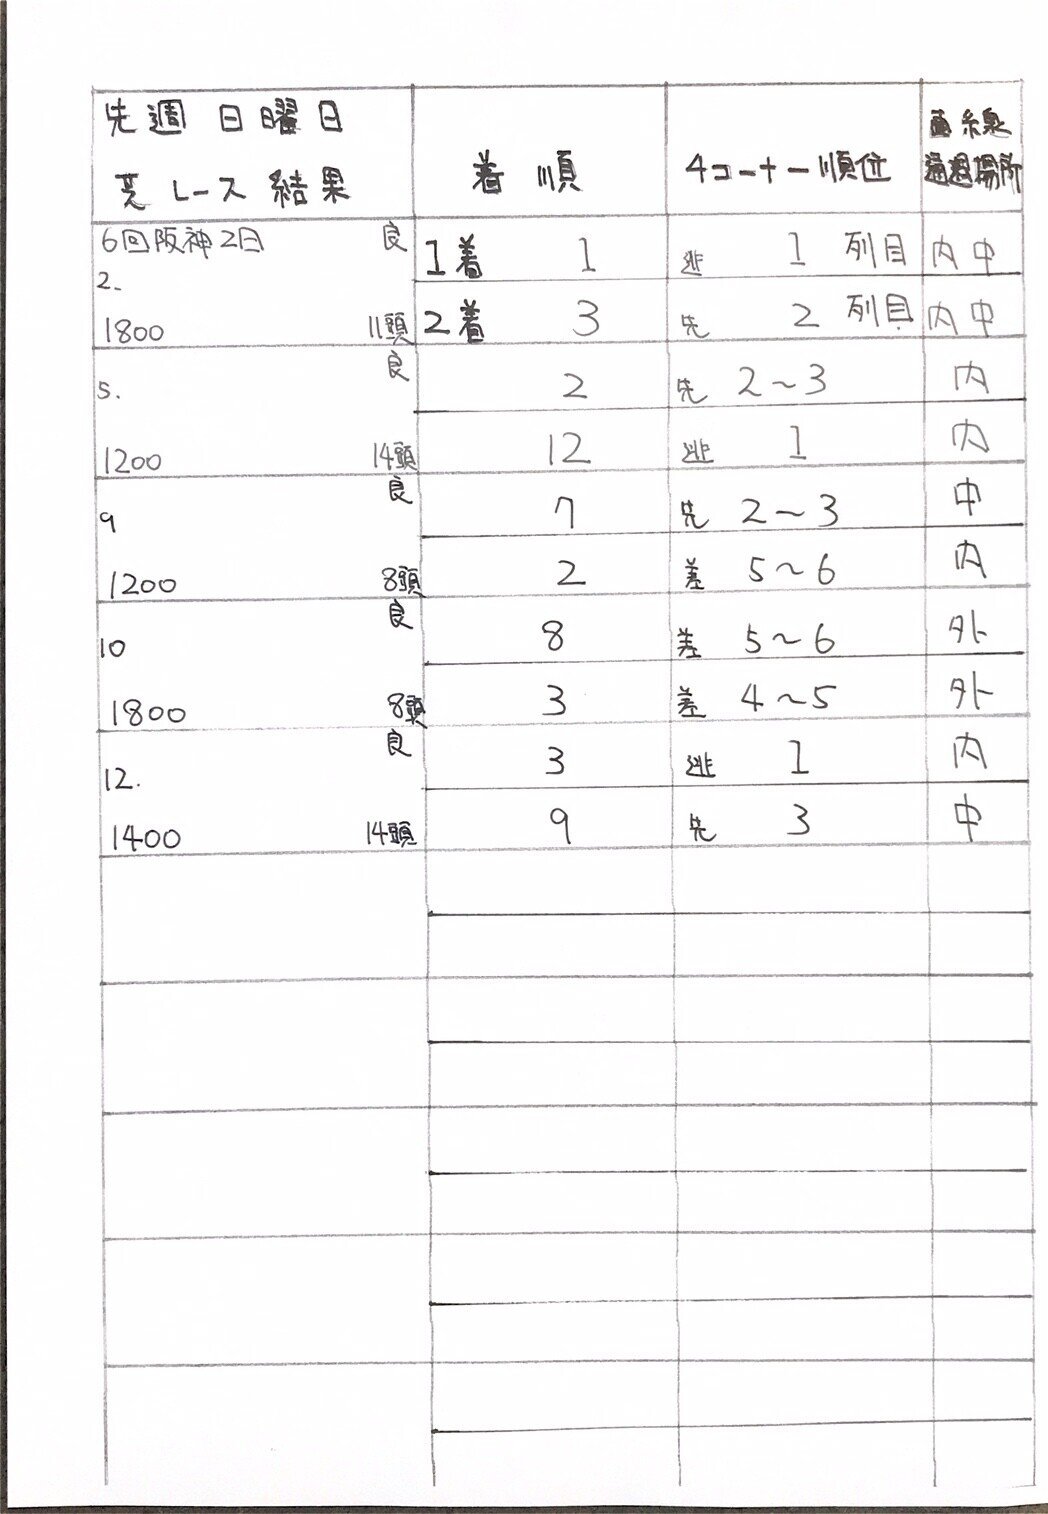 先週 日曜日
芝 レース 結果
着 順
4コーナー順位
直線
通過場所
6回阪神2日 良
2.
1800 11頭
1着 1 逃 1 列目 内中
2着 3 先 2 列目 内中
良
5.
1200 14頭
2 先 2~3 内
12 逃 1 内
良
9
1200 8頭
7 先 2~3 中
2 差 5~6 内
良
10
1800 8頭
8 差 5~6 外
3 差 4~5 外
良
12.
1400 14頭
3 逃 1 内
9 先 3 中